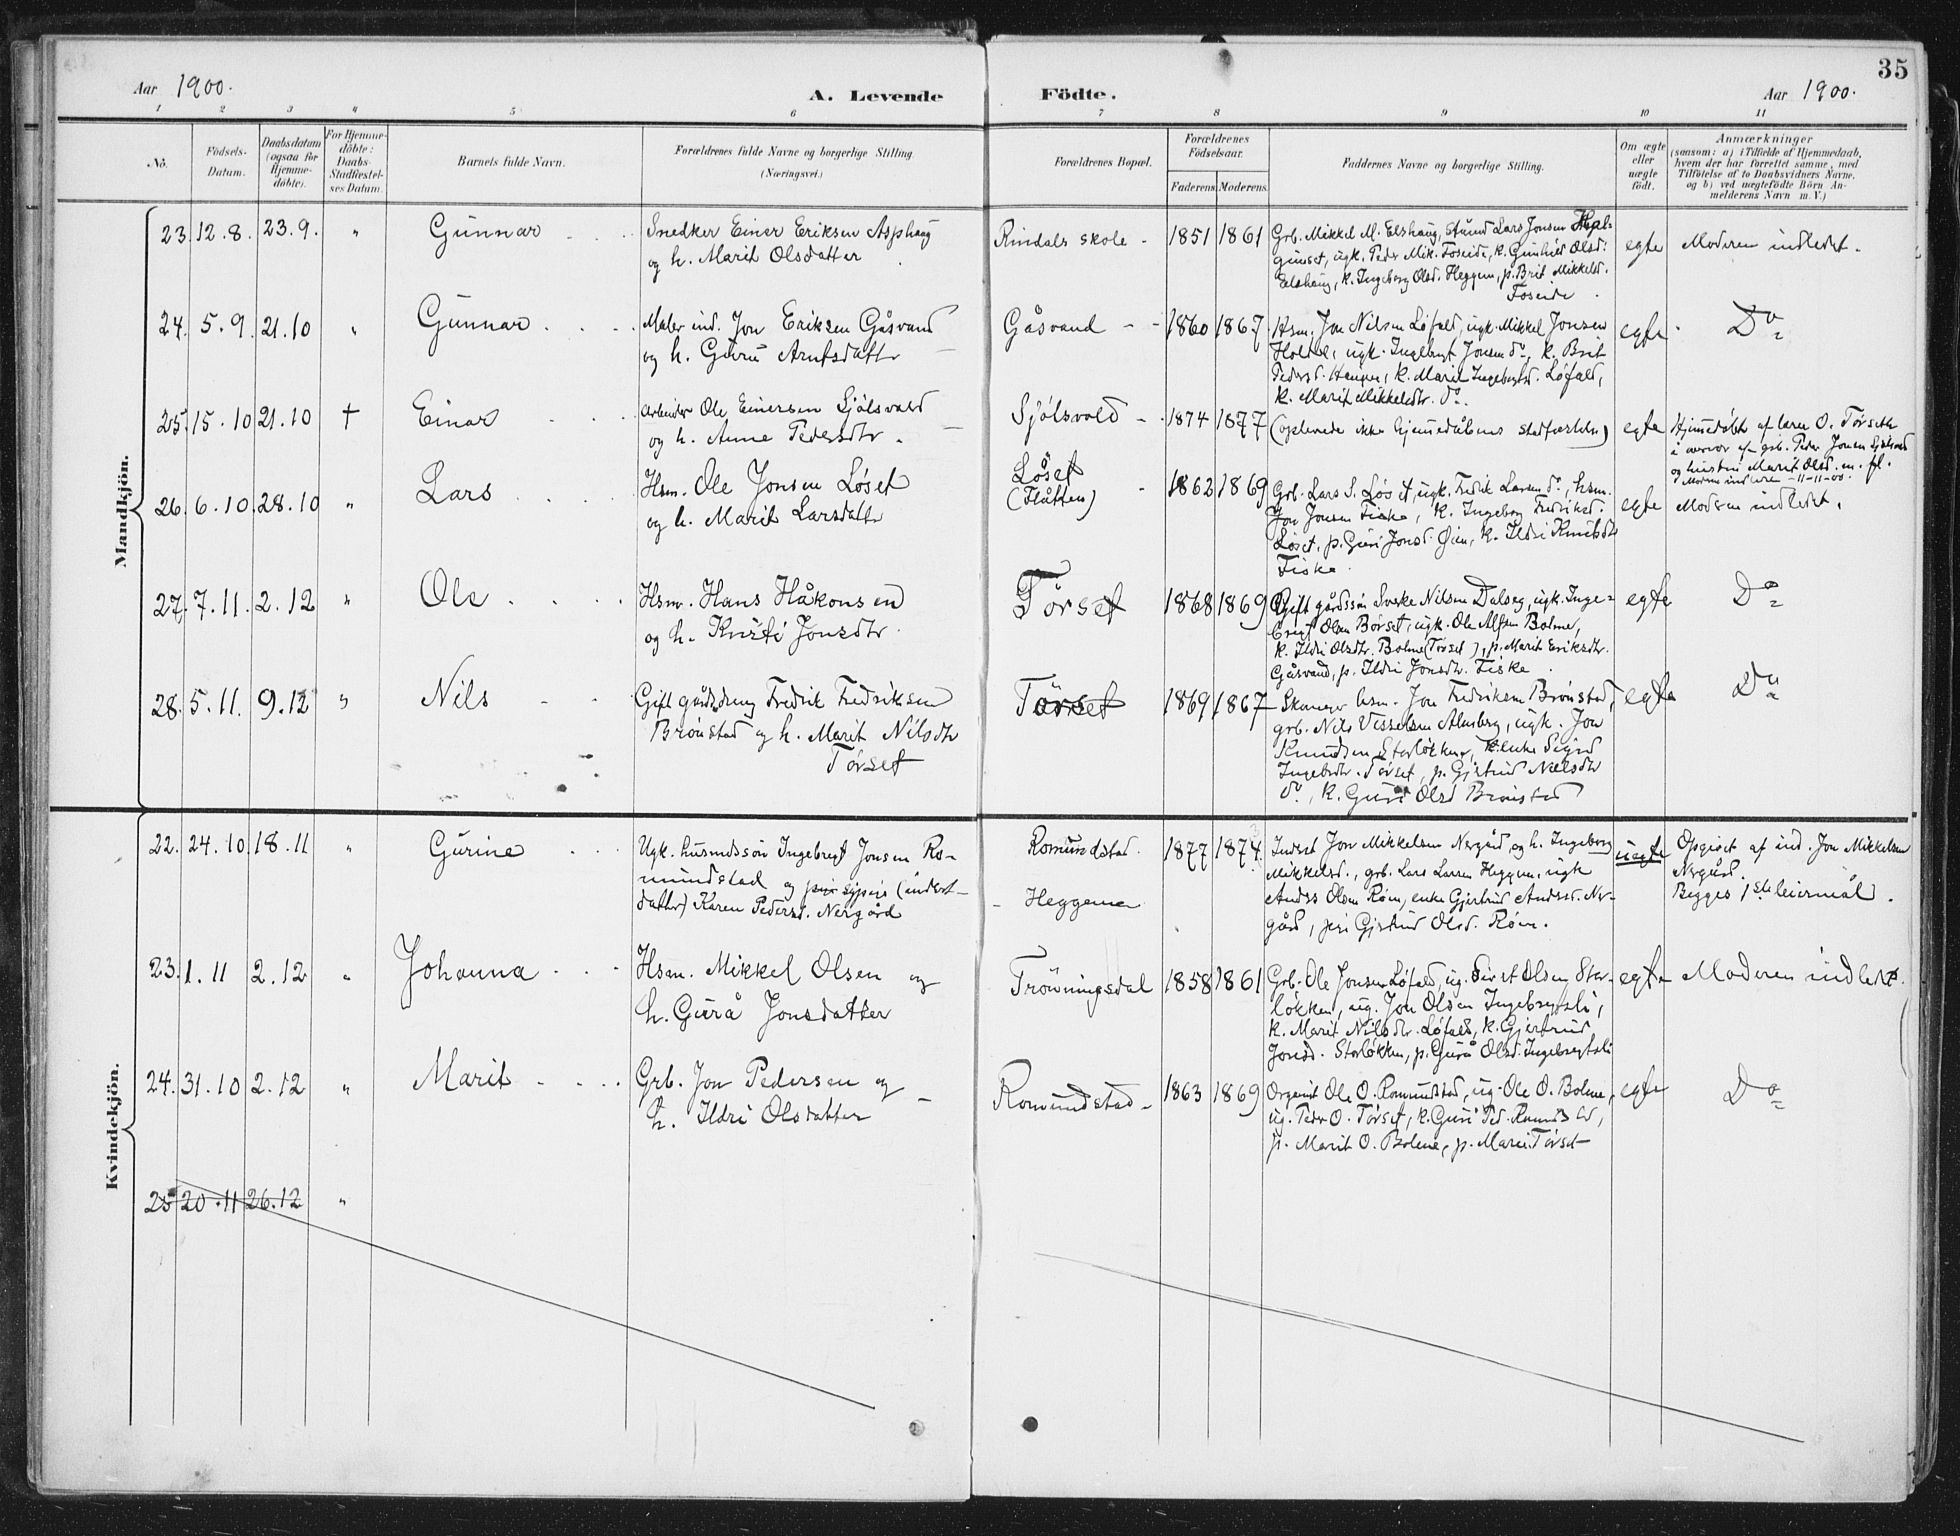 35
Aar 1900.
A. Levende
Födte.
Aar 1900.
1 2 3 4 5 6 7 8 9 10 11
No.
Födsels-
Datum.
Daabsdatum
(ogsaa for
Hjemme-
döbte).
For Hjemme-
döbte:
Daabs-
Stadfæstel-
ses Datum.
Barnets fulde Navn.
Forældrenes fulde Navne og borgerlige Stilling
(Næringsvei.)
Forældrenes Bopæl.
Forældrenes
Födselsaar.
Faderens. Moderens.
Faddernes Navne og borgerlige Stilling.
Om ægte
eller
uægte
født.
Anmærkninger
(saasom: a) i Tilfælde af Hjemmedaab,
hvem der har forrettet samme, med
Tilföielse af to Daabsvidners Navne,
og b) ved uægtefödte Börn An-
melderens Navn m. V.)
Mandkjön.
23. 12.8. 23.9. " Gunnar
Snedker Einer Eriksen Asphaug
og h. Marit Olsdatter
Rindals skole 1851 1861
Grb. Mikkel M. Elshaug, Lars Jonsen Hal-
gunset, ugk. Peder Mik. Foseide, k. Gunhild Olsd.
Elshaug, k. Ingeborg Olsd. Heggem, p. Brit Mikkelsd.
Foseide
egte Moderen indledet.
24. 5.9. 21.10 " Gunnar
Maler ind. Jon Eriksen Gåsvand
og h. Guru Arntsdattr
Gåsvand 1860 1867
Hsm. Jon Nilsen Løfald, ugk. Mikkel Jonsen
Holtel, ugk. Ingebrigt Jonsen do, k. Brit
Pedersd. Haugen, k. Marit Ingebrigtsd. Løfald,
k. Marit Mikkelsdtr. do.
egte Do
25. 15.10 21.10 † Einar
Arbeider Ole Einersen Sjølsvold
og h. Anne Pedersdtr.
Sjølsvold 1874 1877
(oplevede ikke hjemmedåbens stadfæstelse)
egte Hjemmedøbt af lærer O. Tørseth
i overvær af grb. Peder Jonsen Sjølsvold
og hustru Marit Olsd. m. fl.
Moderen indledet 11-11-00.
26. 6.10. 28.10 " Lars
Hsm. Ole Jonsen Løset
og h. Marit Larsdattr
Løset
(Flåtten) 1862 1869
Grb. Lars S. Løset, ugk. Fredik Larsen do, hsm.
Jon Jonsen Fiske, k. Ingeborg Fredriksd.
Løset, p. Guri Jonsd. Øien, k. Ildri Knutsdtr
Fiske.
egte Moderen indledet.
27. 7.11. 2.12 " Ole
Hsm. Hans Håkonsen
og h. Kristi Jonsdtr.
Tørset 1868 1869
Gift gårdssøn Sivert Nilsen Dalseg, ugk. Inge-
brigt Olsen Børset, ugk. Ole Alfsen Bolme,
k. Ildri Olsdtr. Bolme (Tørset), p. Marit Eriksdtr.
Gåsvand, p. Ildri Jonsdtr. Fiske.
egte Do
28. 5.11. 9.12 " Nils
Gift gårddreng Fredrik Fredriksen
Brønstad og h. Marit Nilsdtr
Tørset
Tørset 1869 1867
Skomager hsm. Jon Fredriksen Brønstad,
grb. Nils Vesselsen Almberg, ugk. Jon
Knudsen Storløkken, k. enke Sigrid
Ingebrdtr. Tørset, p. Gjertrud Nielsdtr
do, k. Guri Olsd Brønstad
egte Do
Kvindekjön.
22. 24.10. 18.11 " Gurine
Ugk. husmdssøn Ingebregt Jonsen Ro-
mundstad og sypige (inderst-
datter) Karen Pedersd. Nergård
Romundstad.
Heggem 1877 1874.
Inderst Jon Mikkelsen Nergård og h. Ingeborg
Mikkelsd., grb. Lars Larsen Heggem, ugk
Anders Olsen Røen, enke Gjertrud Andersd. Ner-
gård, pige Gjertrud Olsd. Røen.
uegte Opgivet af ind. Jon Mikkelsen
Nergård.
Begges 1ste leiermål.
23. 1.11 2.12 " Johanna
Hsm. Mikkel Olsen og
h. Gurå Jonsdatter
Trønningsdal 1858 1861
Grb. Ole Jonsen Løfald, ug. Sivert Olsen Stor-
løkken, ug. Jon Olsen Ingebregtsli,
k. Marit Nilsdtr. Løfald, k. Gjertrud
Jonsd. Storløkken, p. Gurå Olsd. Ingebregtsli
egte Moderen indledet.
24. 31.10 2.12 " Marit
Grb. Jon Pedersen og
h. Ildri Olsdatter
Romundstad 1863 1869
Organist Ole O. Romundstad, ug. Ole O. Bolme,
ug. Peder O. Tørset, k. Guri Ped. Romundstad,
p. Marit O. Bolme, p. Marit Tørset
egte Do
25 20.11 26.12 "